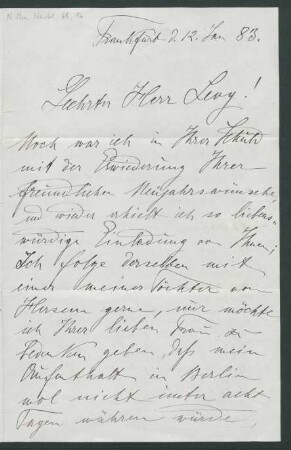 N. Mus. Nachl. 68, 16
Frankfurt d. 12. Jan 83.
Geehrter Herr Levy!
Noch war ich in Ihrer Schuld
mit der Erwiederung Ihrer
freundlichen Neujahrswünsche,
und wieder erhielt ich so liebens-
würdige Einladung von Ihnen;
Ich folge derselben mit
einer meiner Töchter von
Herzen gerne, nur möchte
ich Ihrer lieben Frau zu
bedenken geben, daß mein
Aufenthalt in Berlin
wol nicht unter acht
Tagen währen würde,